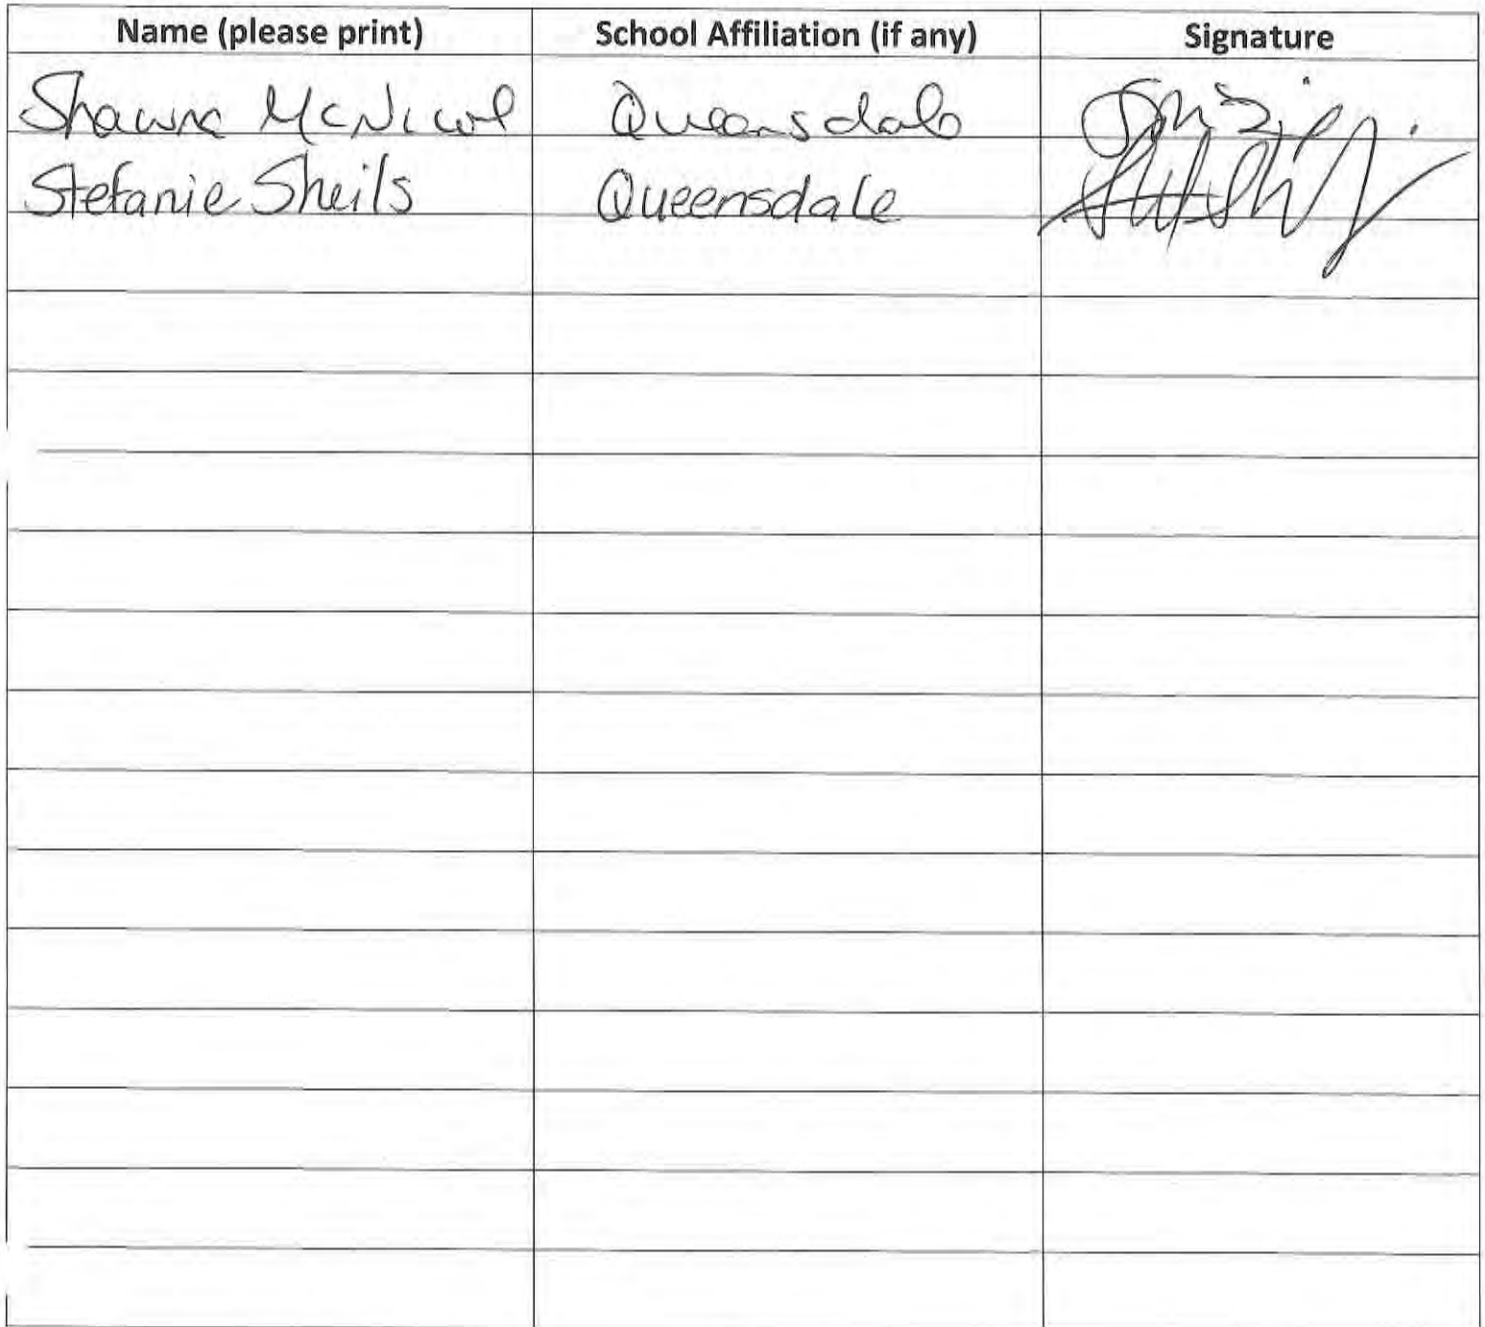 Name (please print) School Affiliation (if any) Signature
Shawna McNicol Queensdale
Stefanie Sheils Queensdale